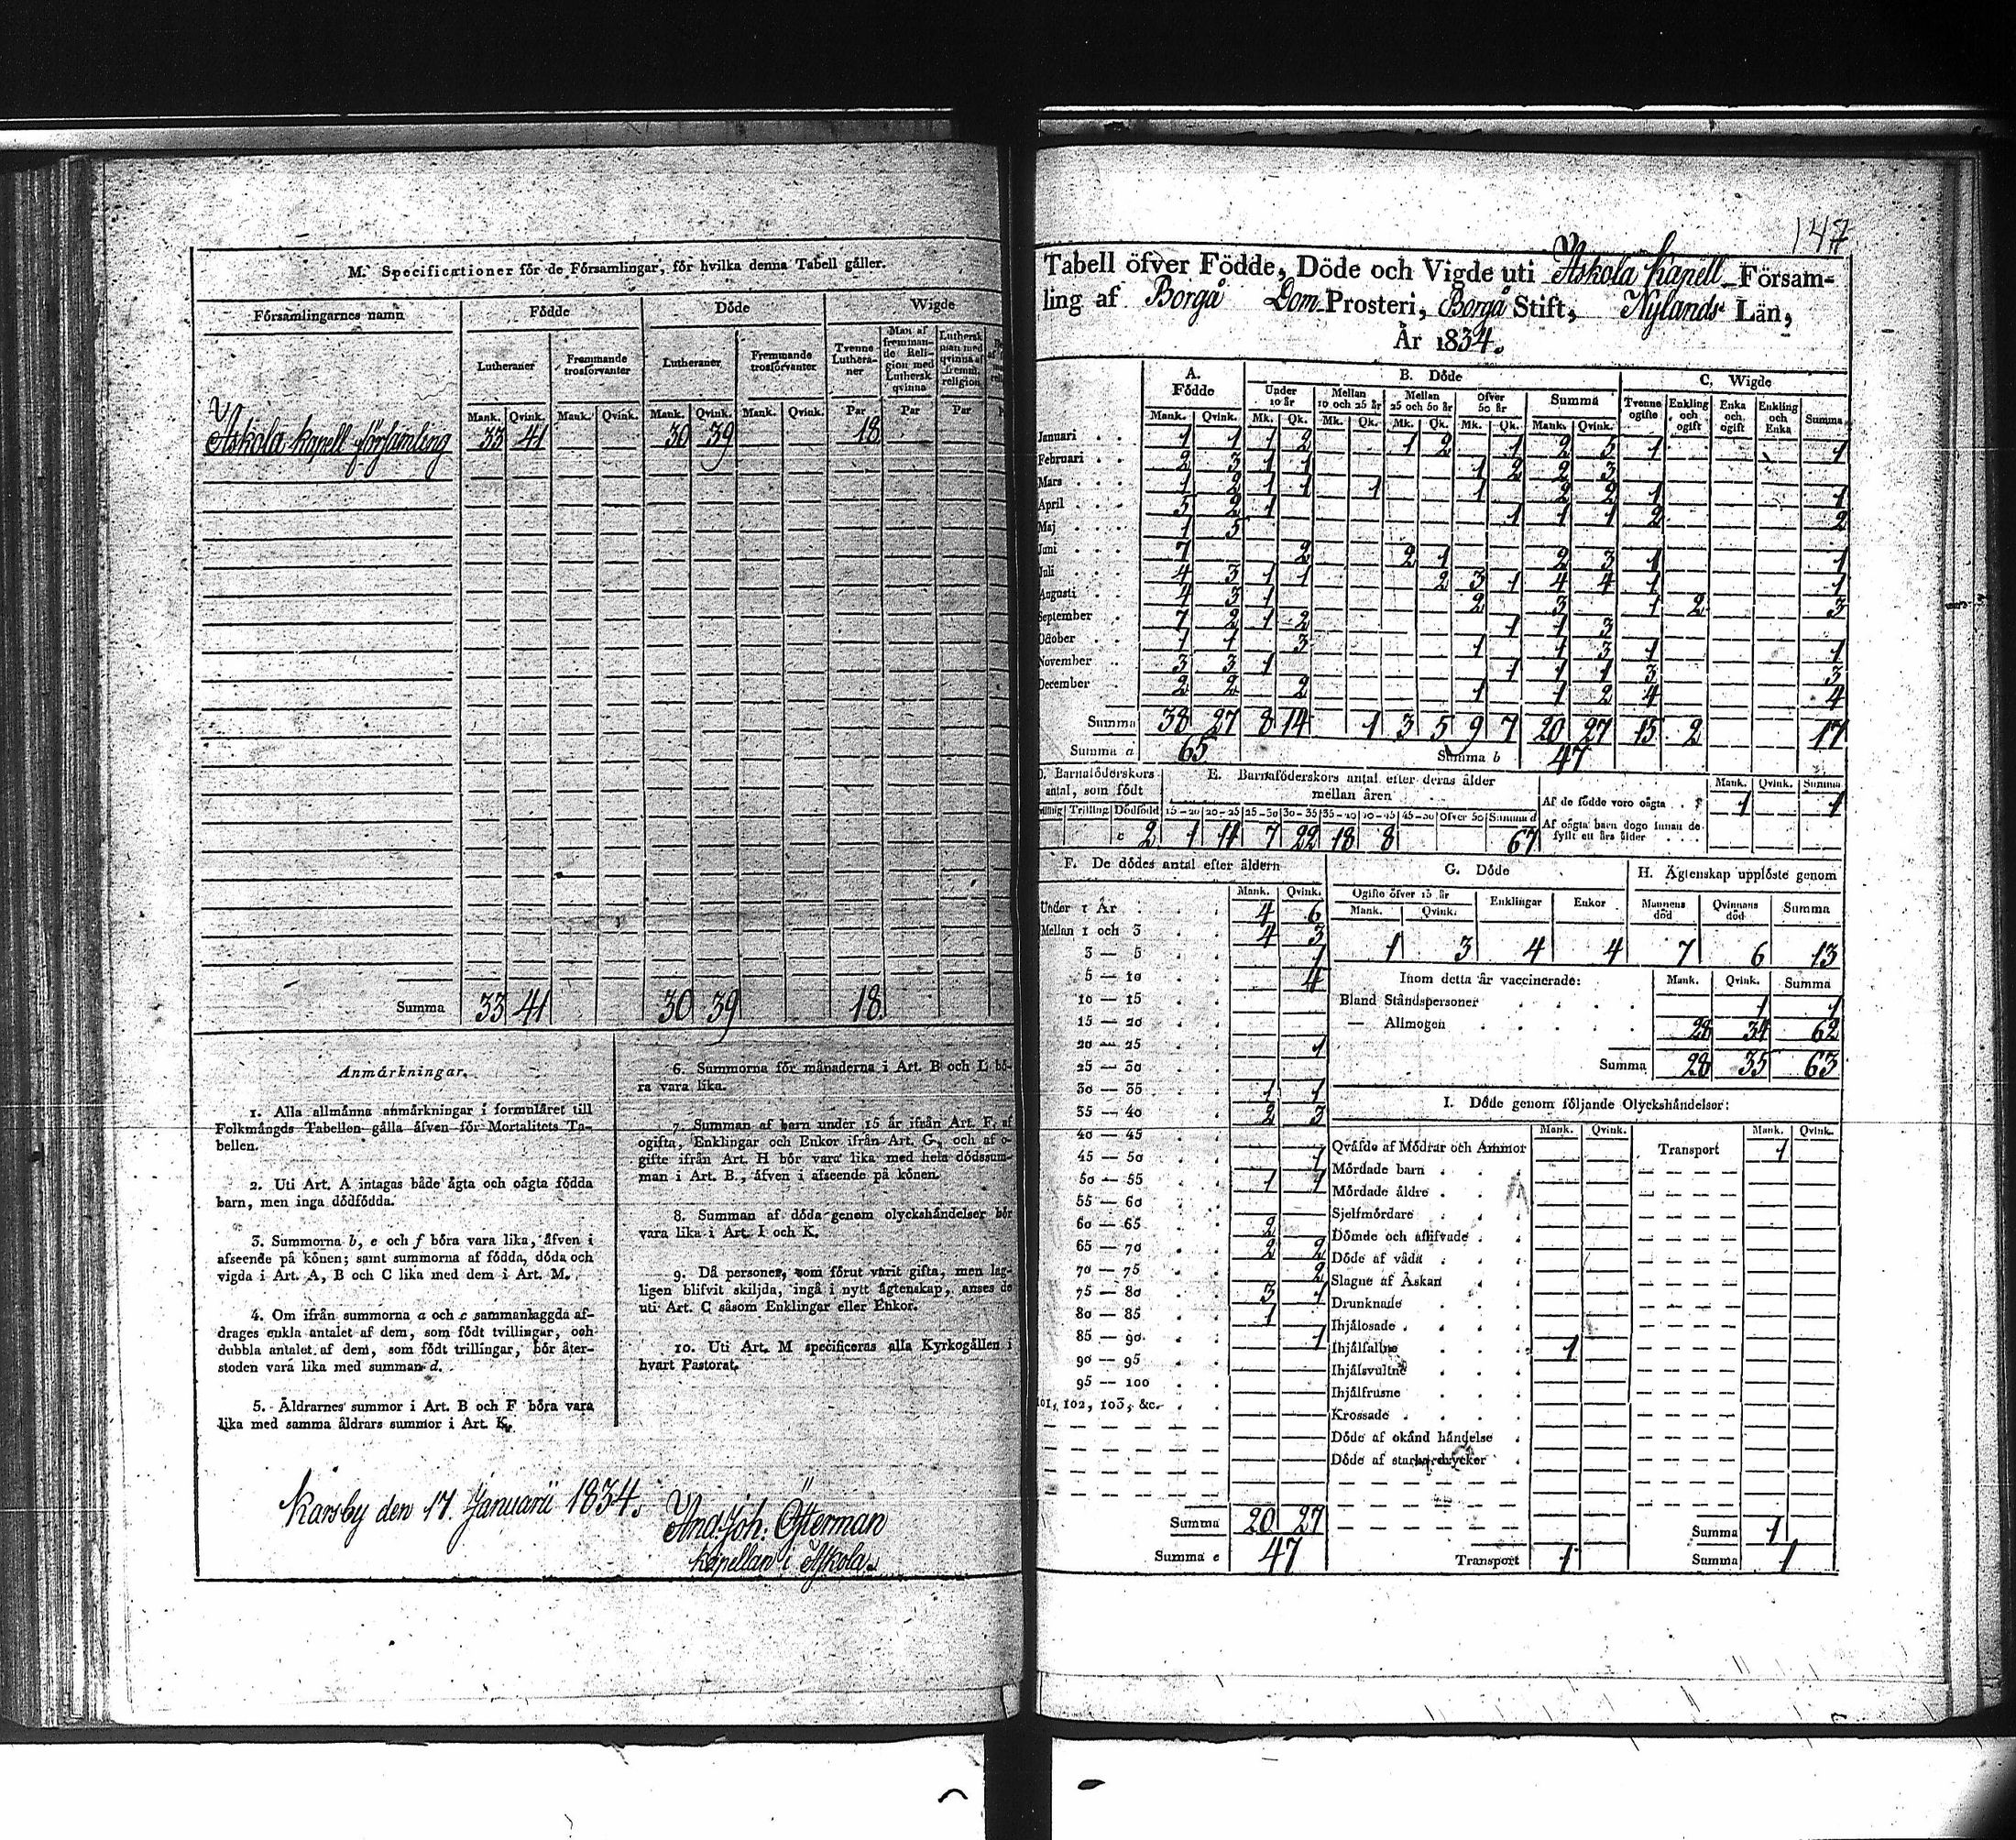 M. Specificationer för de Församlingar, för hvilka denna Tabell gäller.
Församlingarnes namn Födde Döde Wigde
Lutheraner Fremmande trosförvanter Lutheraner Fremmande trosförvanter Tvenne Lutheraner Man af fremmande Religion med Luthersk qvinna Luthersk man med qvinna af fremm. religion
Mank. Qvink. Mank. Qvink. Mank. Qvink. Mank. Qvink. Par Par Par
Askola kapell församling 33 41 30 39 18
Summa 33 41 30 39 18
Anmärkningar.
1. Alla allmänna anmärkningar i formuläret till
Folkmängds Tabellen gälla äfven för Mortalitets Ta-
bellen.
2. Uti Art. A intagas både ägta och oägta födda
barn, men inga dödfödda.
3. Summorna b, e och f böra vara lika, äfven i
afseende på könen; samt summorna af födda, döda och
vigda i Art. A, B och C lika med dem i Art. M.
4. Om ifrån summorna a och c sammanlaggda af-
drages enkla antalet af dem, som födt tvillingar, och
dubbla antalet af dem, som födt trillingar, bör åter-
stoden vara lika med summan d.
5. Åldrarnes summor i Art. B och F böra vara
lika med samma åldrars summor i Art. K.
6. Summorna för månaderna i Art. B och L bö-
ra vara lika.
7. Summan af barn under 15 år ifrån Art. F, af
ogifta, Enklingar och Enkor ifrån Art. G, och af o-
gifte ifrån Art. H bör vara lika med hela dödssum-
man i Art. B., äfven i afseende på könen.
8. Summan af döda genom olyckshändelser bör
vara lika i Art. I och K.
9. Då personer, som förut varit gifta, men lag-
ligen blifvit skiljda, ingå i nytt ägtenskap, anses de
uti Art. C såsom Enklingar eller Enkor.
10. Uti Art. M specificeras alla Kyrkogällen i
hvart Pastorat.
Karsby den 17. Januarii 1834.
And. Joh. Österman
kapellan i Askola.
147
Tabell öfver Födde, Döde och Vigde uti Askola kapell Försam-
ling af Borgå Dom-Prosteri, Borgå Stift, Nylands Län,
År 1834.
A. Födde B. Döde C. Wigde
Under 10 år Mellan 10 och 25 år Mellan 25 och 50 år Öfver 50 år Summa Tvenne ogifte Enkling och ogift Enka och ogift Enkling och Enka Summa
Mank. Qvink. Mk. Qk. Mk. Qk. Mk. Qk. Mk. Qk. Mank. Qvink.
Januari 1 1 1 2 1 2 1 2 5 1 1
Februari 2 3 1 1 1 2 2 3
Mars 1 2 1 1 1 1 2 2 1 1
April 5 2 1 1 1 1 2 2
Maj 1 5
Juni 7 2 2 1 2 3 1 1
Juli 4 3 1 1 2 3 1 4 4 1 1
Augusti 4 3 1 2 3 1 2 3
September 7 2 1 2 1 1 3
October 1 1 3 1 1 3 1 1
November 3 3 1 1 1 1 3 3
December 2 2 2 1 1 2 4 4
Summa 38 27 8 14 1 3 5 9 7 20 27 15 2 17
Summa a 65 Summa b 47
D. Barnaföderskors antal, som födt
Trilling Dödfödd
c 2
E. Barnaföderskors antal efter deras ålder
mellan åren
15-20 20-25 25-30 30-35 35-40 40-45 45-50 Öfver 50 Summa d
1 11 7 22 18 8 67
Mank. Qvink. Summa
Af de födde voro oägta 1 1
Af oägta barn dogo innan de
fyllt ett års ålder
F. De dödes antal efter åldern
Mank. Qvink.
Under 1 År 4 6
Mellan 1 och 3 4 3
3 — 5 1
5 — 10 4
10 — 15
15 — 20
20 — 25 1
25 — 30
30 — 35 1 1
35 — 40 2 3
40 — 45
45 — 50 1
50 — 55 1 1
55 — 60
60 — 65 2
65 — 70 2 2
70 — 75 2
75 — 80 3 1
80 — 85 1
85 — 90 1
90 — 95
95 — 100
101, 102, 103, &c.
Summa 20 27
Summa e 47
G. Döde
Ogifte öfver 15 år Enklingar Enkor
Mank. Qvink.
1 3 4 4
H. Ägtenskap upplöste genom
Mannens död Qvinnans död Summa
7 6 13
Inom detta år vaccinerade: Mank. Qvink. Summa
Bland Ståndspersoner 1 1
— Allmogen 28 34 62
Summa 28 35 63
I. Döde genom följande Olyckshändelser:
Mank. Qvink. Mank. Qvink.
Qväfde af Mödrar och Ammor Transport 1
Mördade barn
Mördade äldre
Sjelfmördare
Dömde och aflifvade
Döde af våda
Slagne af Åskan
Drunknade
Ihjälosade
Ihjälfallne 1
Ihjälsvultne
Ihjälfrusne
Krossade
Döde af okänd händelse
Döde af starka drycker
Summa 1
Transport 1 Summa 1